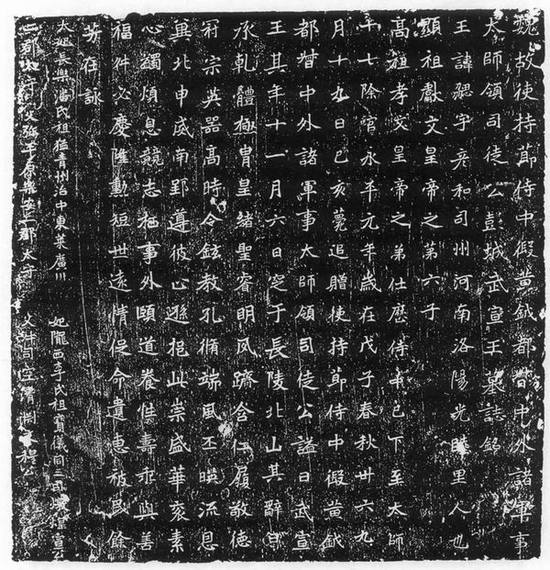 魏故使持節侍中假黃鉞都督中外諸軍事
太師領司徒公彭城武宣王墓誌銘
王諱勰字彥和司州河南洛陽光睦里人也
顯祖獻文皇帝之第六子
高祖孝文皇帝之弟仕歷侍中已下至太師
十七除官永平元年歲在戊子春秋卅六九
月十九日己亥薨追贈使持節侍中假黃鉞
都督中外諸軍事太師領司徒公謚曰武宣
王其年十一月六日窆于長陵北山其辭曰
承乹體極胄皇緒聖睿明夙躋含仁履敬德
冠宗英器高時令鉉教孔脩端風丕暎流恩
冀北申威南郢遵彼止遜挹此崇盛華袞素
心蠲煩息競志栖事外頤道養性壽乖與善
福舛必慶隆勳短世遠情促命遺惠被民餘
芳在詠
太妃長樂潘氏祖猛青州治中東萊廣川
二郡太守 父彌平原樂安二郡太守
妃隴西李氏祖寶儀同三司燉煌宣公
父沖司空清淵文穆公